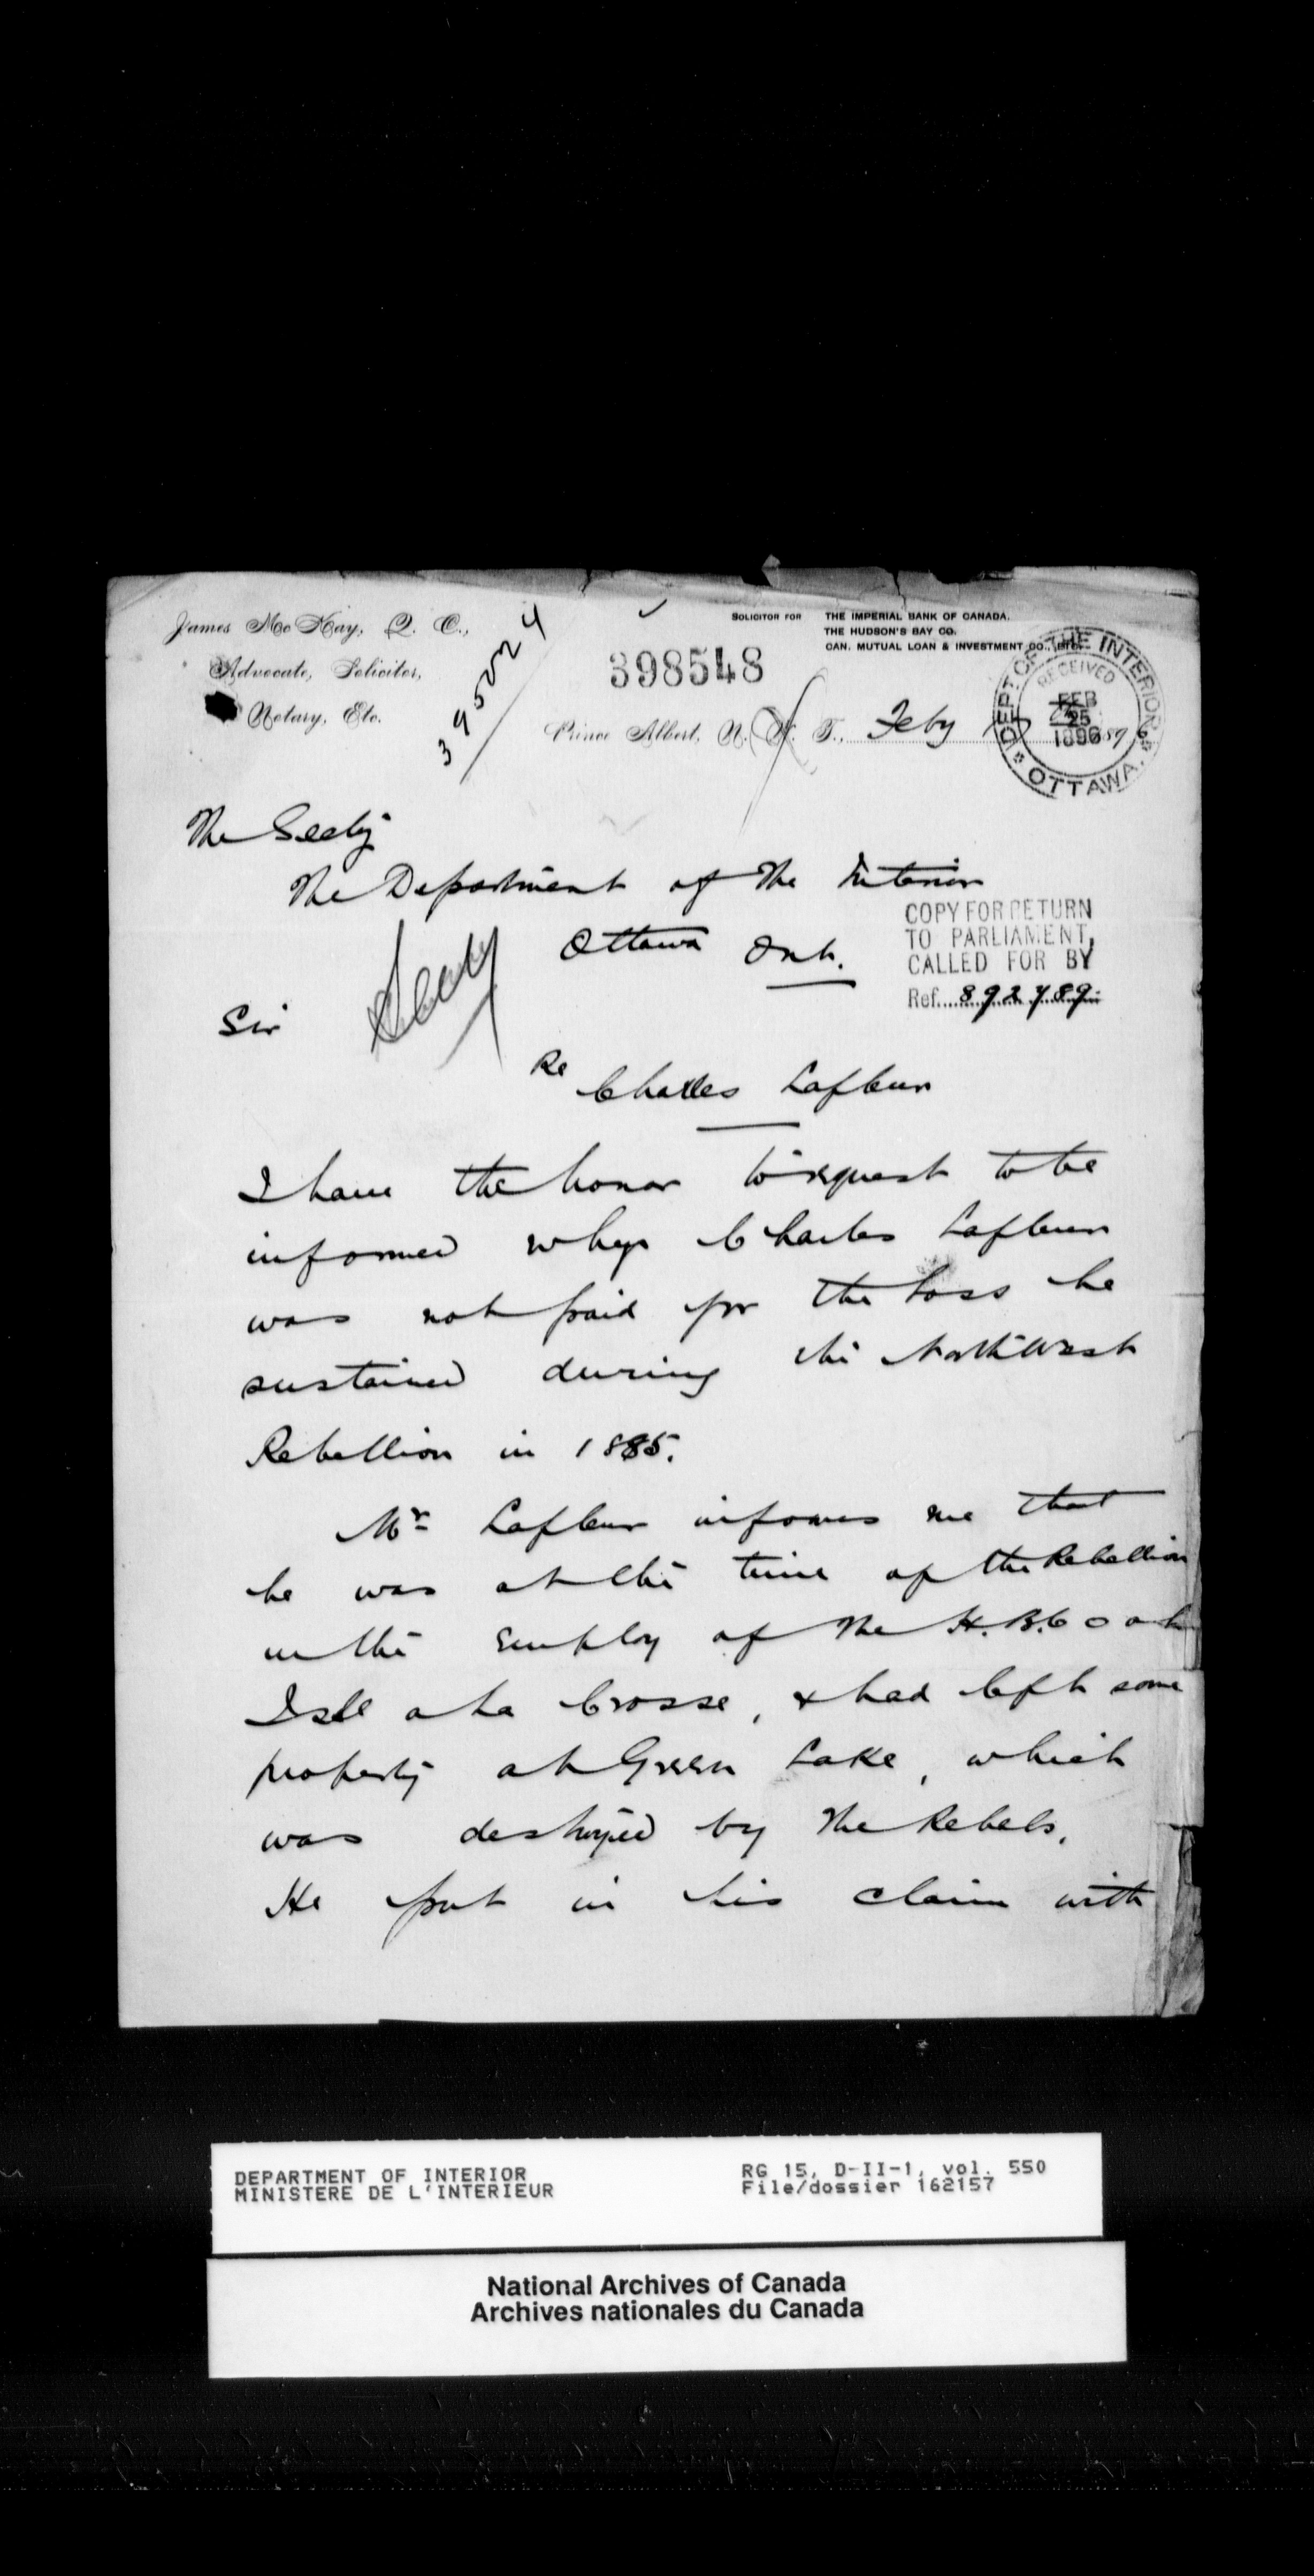 James McKay, Q. C.,
Advocate, Solicitor,
Notary, Etc.
395024
398548
SOLICITOR FOR THE IMPERIAL BANK OF CANADA,
THE HUDSON'S BAY CO.
CAN. MUTUAL LOAN & INVESTMENT CO., LTD.
Prince Albert, N. W. T., Feby 189 6
DEPT. OF THE INTERIOR
RECEIVED
FEB
25
1896
OTTAWA.
The Secty
The Department of The Interior
Ottawa Ont.
COPY FOR RETURN
TO PARLIAMENT,
CALLED FOR BY
Ref. 892789
Secty
Sir
Re Charles Lafleur
I have the honor to request to be
informed why Charles Lafleur
was not paid for the loss he
sustained during the North West
Rebellion in 1885.
Mr Lafleur informs me that
he was at the time of the Rebellion
in the employ of The H.B.Co at
Isle a La Crosse, & had left some
property at Green Lake, which
was destroyed by The Rebels.
He put in his claim with
DEPARTMENT OF INTERIOR
MINISTERE DE L'INTERIEUR
RG 15, D-II-1, vol. 550
File/dossier 162157
National Archives of Canada
Archives nationales du Canada